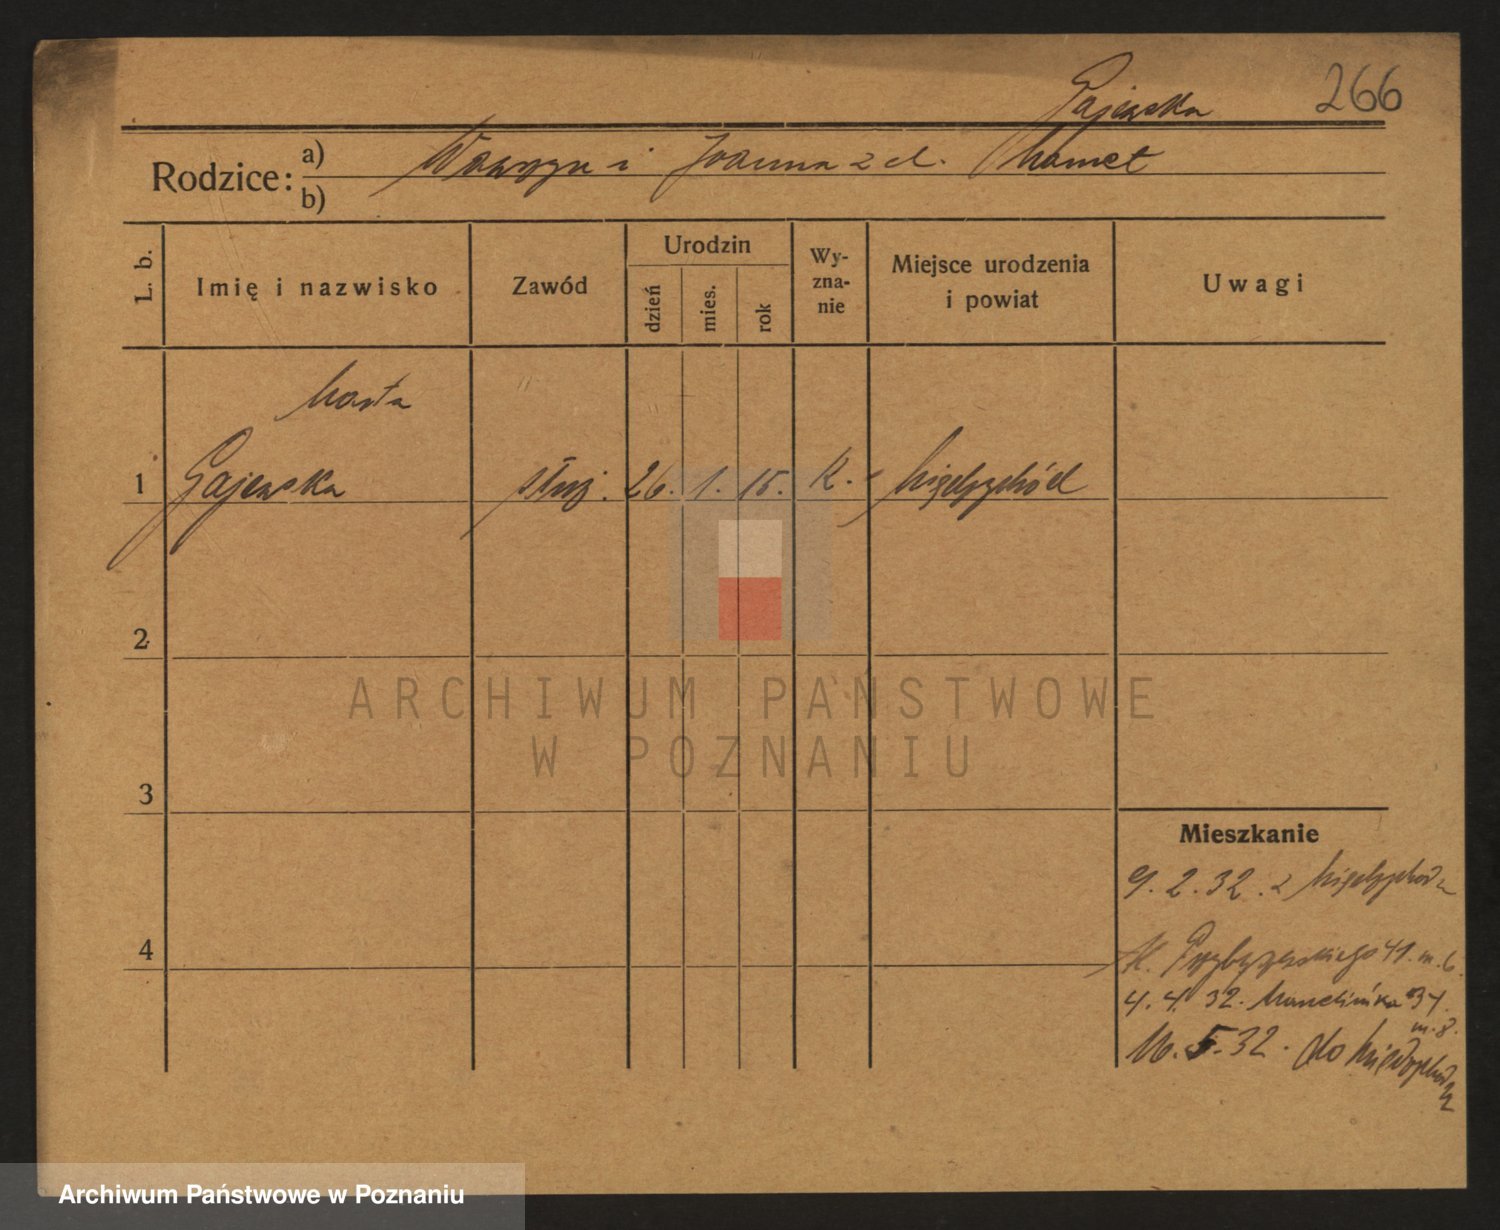 266
Gajewska
Rodzice: a) Wawrzyn i Joanna z d.
b)
L. b.
Imię i nazwisko
Zawód
Urodzin
dzień
mies.
rok
Wy-
zna-
nie
Miejsce urodzenia
i powiat
Uwagi
Marta
1 Gajewska służ. 26. 1. 15. R. Międzychód
2
3
4
Mieszkanie
9.2.32. z Międzychodu
Przybyszewskiego 41 m. 6.
4.4.32. 37.
m. 8.
16.5.32. do Międzychodu
ARCHIWUM PAŃSTWOWE
W POZNANIU
Archiwum Państwowe w Poznaniu